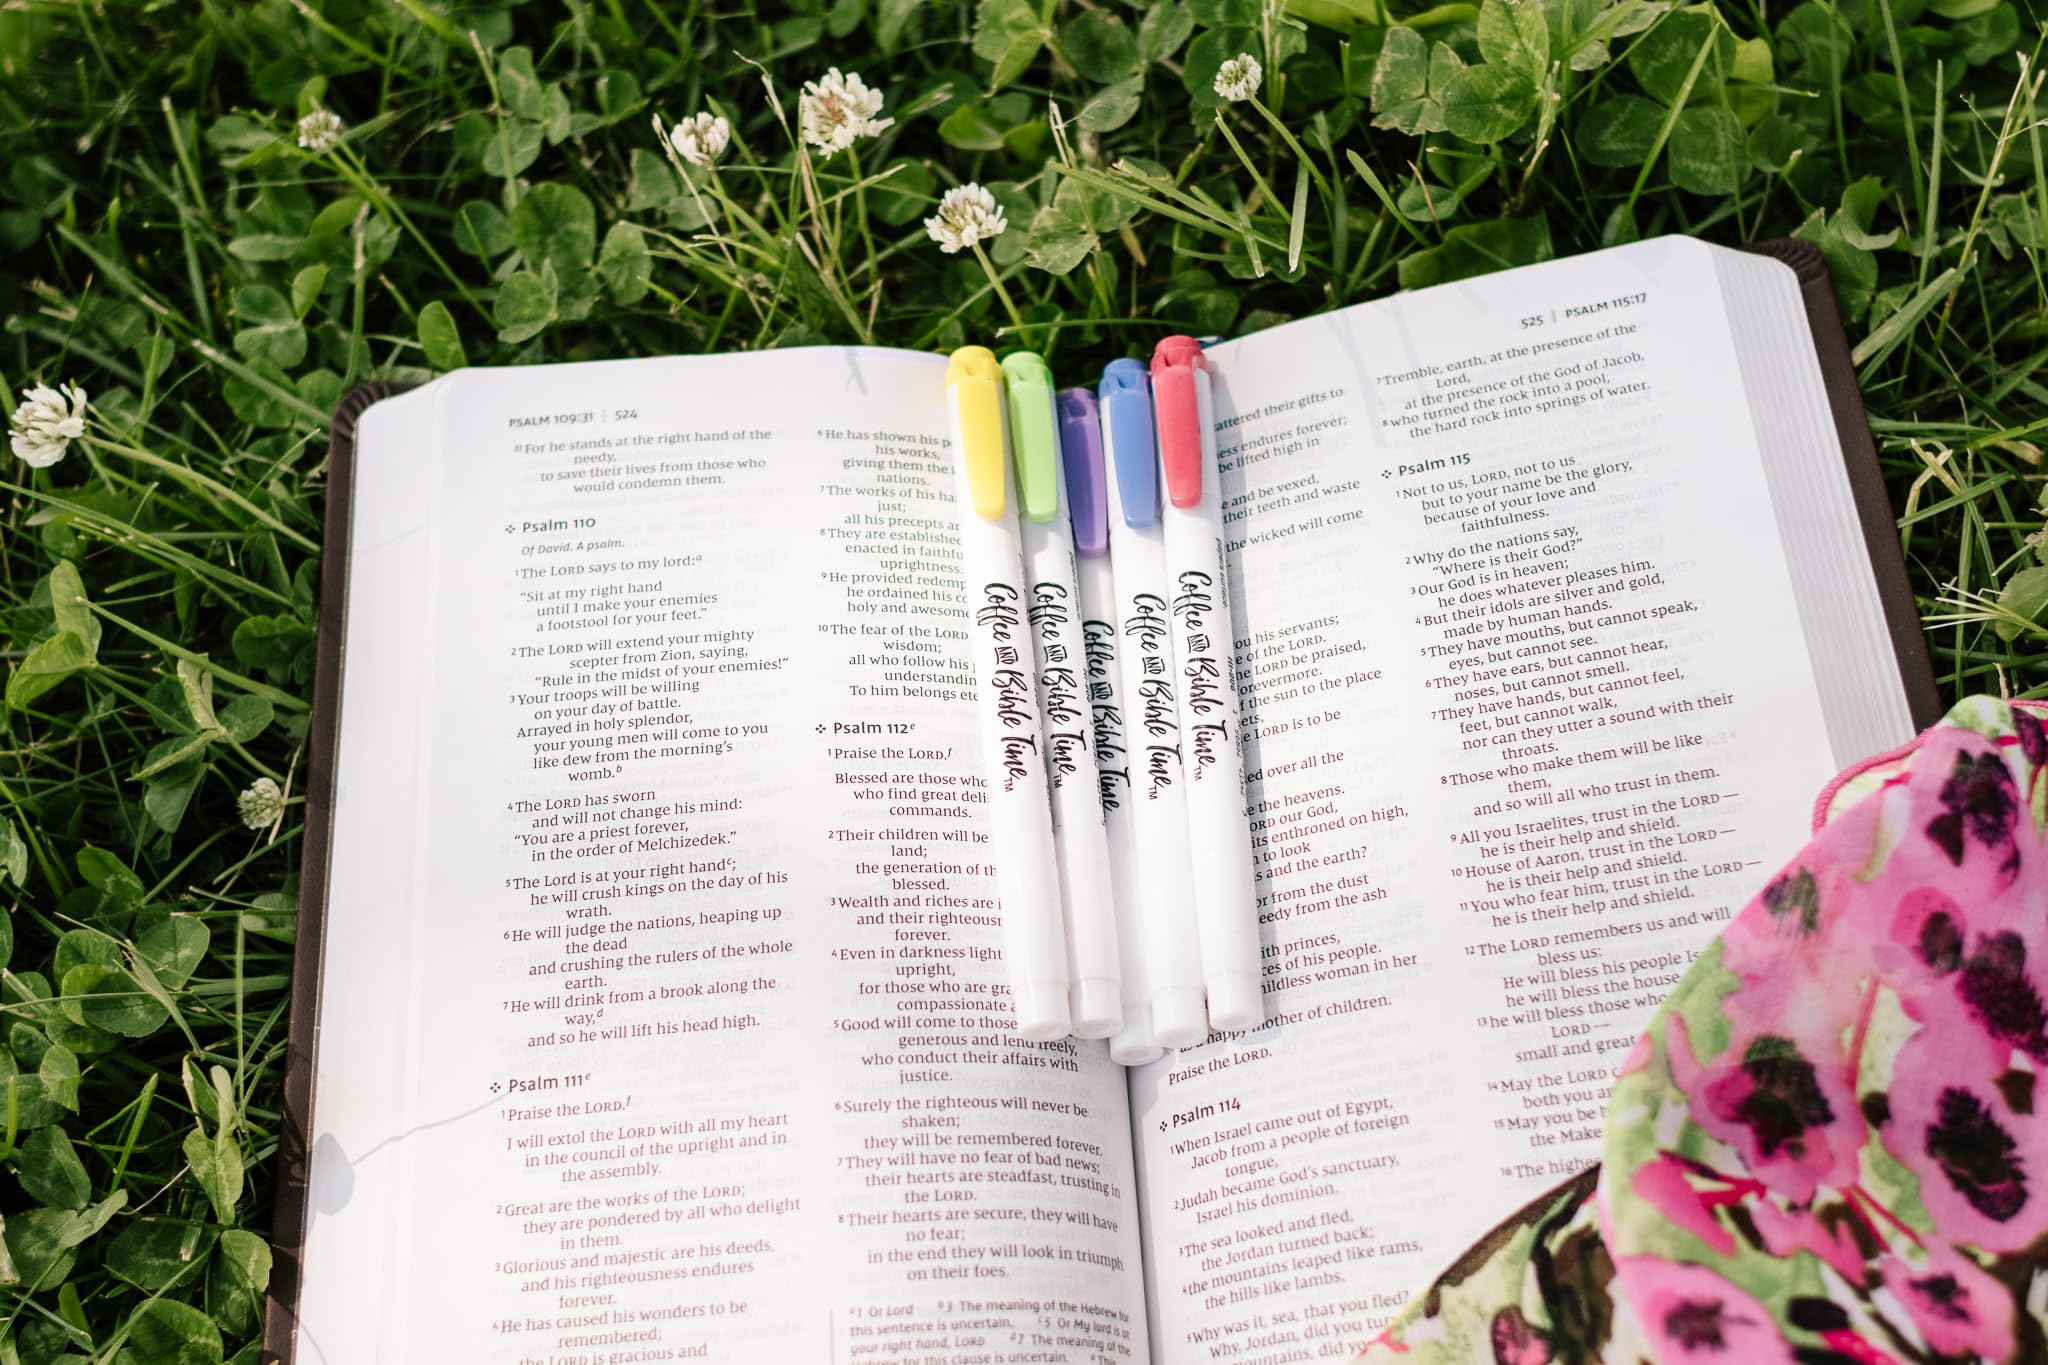 PSALM 109:31 | 524
31 For he stands at the right hand of the
needy,
to save their lives from those who
would condemn them.
Psalm 110
Of David. A psalm.
1 The LORD says to my lord:a
“Sit at my right hand
until I make your enemies
a footstool for your feet.”
2 The LORD will extend your mighty
scepter from Zion, saying,
“Rule in the midst of your enemies!”
3 Your troops will be willing
on your day of battle.
Arrayed in holy splendor,
your young men will come to you
like dew from the morning’s
womb.b
4 The LORD has sworn
and will not change his mind:
“You are a priest forever,
in the order of Melchizedek.”
5 The Lord is at your right handc;
he will crush kings on the day of his
wrath.
6 He will judge the nations, heaping up
the dead
and crushing the rulers of the whole
earth.
7 He will drink from a brook along the
way,d
and so he will lift his head high.
Psalm 111e
1 Praise the LORD.f
I will extol the LORD with all my heart
in the council of the upright and in
the assembly.
2 Great are the works of the LORD;
they are pondered by all who delight
in them.
3 Glorious and majestic are his deeds,
and his righteousness endures
forever.
4 He has caused his wonders to be
remembered;
the LORD is gracious and
6 He has shown his
his works,
giving them the
nations.
7 The works of his
just;
all his precepts
8 They are established
enacted in
uprightness.
9 He provided
he ordained his
holy and awesome
10 The fear of the LORD
wisdom;
all who follow his
To him belongs
Psalm 112e
1 Praise the LORD.f
Blessed are those who
who find great
commands.
2 Their children will be
land;
the generation of
blessed.
3 Wealth and riches are
and their
forever.
4 Even in darkness light
upright,
for those who are
compassionate
5 Good will come to those
generous and lend freely,
who conduct their affairs with
justice.
6 Surely the righteous will never be
shaken;
they will be remembered forever.
7 They will have no fear of bad news;
their hearts are steadfast, trusting in
the LORD.
8 Their hearts are secure, they will have
no fear;
in the end they will look in triumph
on their foes.
a 1 Or Lord b 3 The meaning of the Hebrew for
this sentence is uncertain. c 5 Or My lord is at
your right hand, LORD d 7 The meaning of the
Hebrew for this clause is uncertain. e This
Coffee AND Bible Time TM
Coffee AND Bible Time TM
Coffee AND Bible Time
Coffee AND Bible Time TM
Coffee AND Bible Time TM
525 | PSALM 115:17
their gifts to
endures forever;
be lifted high in
and be vexed,
their teeth and waste
the wicked will come
his servants;
of the LORD.
LORD be praised,
the sun to the place
LORD is to be
over all the
the heavens.
our God,
enthroned on high,
to look
and the earth?
from the dust
from the ash
princes,
of his people.
childless woman in her
happy mother of children.
Praise the LORD.
Psalm 114
1 When Israel came out of Egypt,
Jacob from a people of foreign
tongue,
2 Judah became God’s sanctuary,
Israel his dominion.
3 The sea looked and fled,
the Jordan turned back;
4 the mountains leaped like rams,
the hills like lambs.
5 Why was it, sea, that you fled?
Why, Jordan, did you
mountains, did
7 Tremble, earth, at the presence of the
Lord,
at the presence of the God of Jacob,
8 who turned the rock into a pool,
the hard rock into springs of water.
Psalm 115
1 Not to us, LORD, not to us
but to your name be the glory,
because of your love and
faithfulness.
2 Why do the nations say,
“Where is their God?”
3 Our God is in heaven;
he does whatever pleases him.
4 But their idols are silver and gold,
made by human hands.
5 They have mouths, but cannot speak,
eyes, but cannot see.
6 They have ears, but cannot hear,
noses, but cannot smell.
7 They have hands, but cannot feel,
feet, but cannot walk,
nor can they utter a sound with their
throats.
8 Those who make them will be like
them,
and so will all who trust in them.
9 All you Israelites, trust in the LORD —
he is their help and shield.
10 House of Aaron, trust in the LORD —
he is their help and shield.
11 You who fear him, trust in the LORD —
he is their help and shield.
12 The LORD remembers us and will
bless us:
He will bless his people
he will bless the house
13 he will bless those who
LORD —
small and great
14 May the LORD
both you
15 May you be
the
16 The